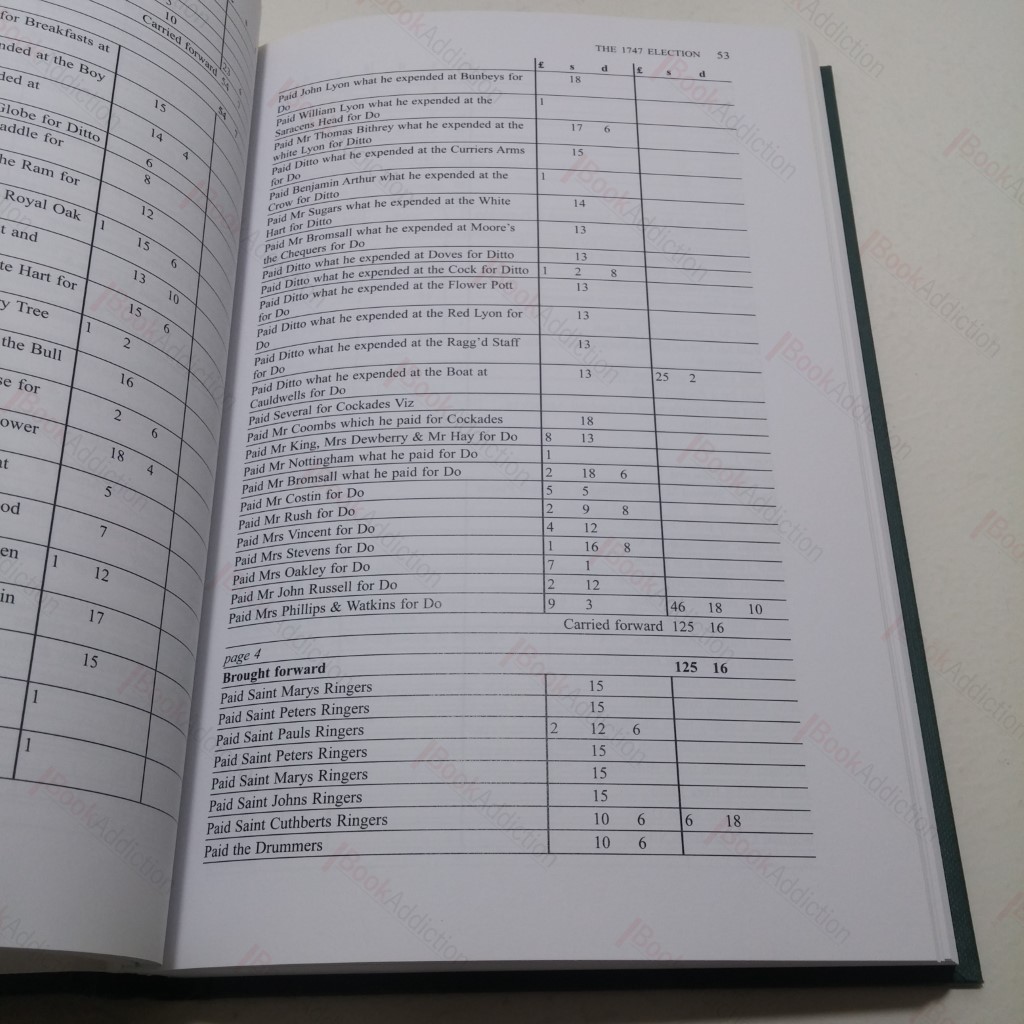 10
Carried forward 23
54
for Breakfasts at
54 7
nded at the Boy 15
ded at 14 4
Globe for Ditto 6
addle for 8
he Ram for 12
Royal Oak 1 15 6
t and 13 10
te Hart for 15 6
y Tree 1 2
the Bull 16
se for 2 6
ower 18 4
at 5
od 7
en 1 12
in 17
15
1
1
THE 1747 ELECTION 53
£ s d £ s d
Paid John Lyon what he expended at Bunbeys for 18
Do
Paid William Lyon what he expended at the 1
Saracens Head for Do
Paid Mr Thomas Bithrey what he expended at the 17 6
white Lyon for Ditto
Paid Ditto what he expended at the Curriers Arms 15
for Do
Paid Benjamin Arthur what he expended at the 1
Crow for Ditto
Paid Mr Sugars what he expended at the White 14
Hart for Ditto
Paid Mr Bromsall what he expended at Moore's 13
the Chequers for Do
Paid Ditto what he expended at Doves for Ditto 13
Paid Ditto what he expended at the Cock for Ditto 1 2 8
Paid Ditto what he expended at the Flower Pott 13
for Do
Paid Ditto what he expended at the Red Lyon for 13
Do
Paid Ditto what he expended at the Ragg'd Staff 13
for Do
Paid Ditto what he expended at the Boat at 13 25 2
Cauldwells for Do
Paid Several for Cockades Viz
Paid Mr Coombs which he paid for Cockades 18
Paid Mr King, Mrs Dewberry & Mr Hay for Do 8 13
Paid Mr Nottingham what he paid for Do 1
Paid Mr Bromsall what he paid for Do 2 18 6
Paid Mr Costin for Do 5 5
Paid Mr Rush for Do 2 9 8
Paid Mrs Vincent for Do 4 12
Paid Mrs Stevens for Do 1 16 8
Paid Mrs Oakley for Do 7 1
Paid Mr John Russell for Do 2 12
Paid Mrs Phillips & Watkins for Do 9 3 46 18 10
Carried forward 125 16
page 4
Brought forward 125 16
Paid Saint Marys Ringers 15
Paid Saint Peters Ringers 15
Paid Saint Pauls Ringers 2 12 6
Paid Saint Peters Ringers 15
Paid Saint Marys Ringers 15
Paid Saint Johns Ringers 15
Paid Saint Cuthberts Ringers 10 6 6 18
Paid the Drummers 10 6